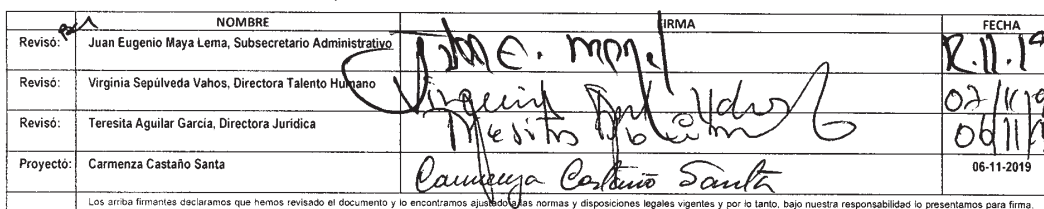 NOMBRE FIRMA FECHA
Revisó: Juan Eugenio Maya Lema, Subsecretario Administrativo
Revisó: Virginia Sepúlveda Vahos, Directora Talento Humano
Revisó: Teresita Aguilar García, Directora Jurídica
Proyectó: Carmenza Castaño Santa Carmenza Castaño Santa 06-11-2019
Los arriba firmantes declaramos que hemos revisado el documento y lo encontramos ajustado a las normas y disposiciones legales vigentes y por lo tanto, bajo nuestra responsabilidad lo presentamos para firma.